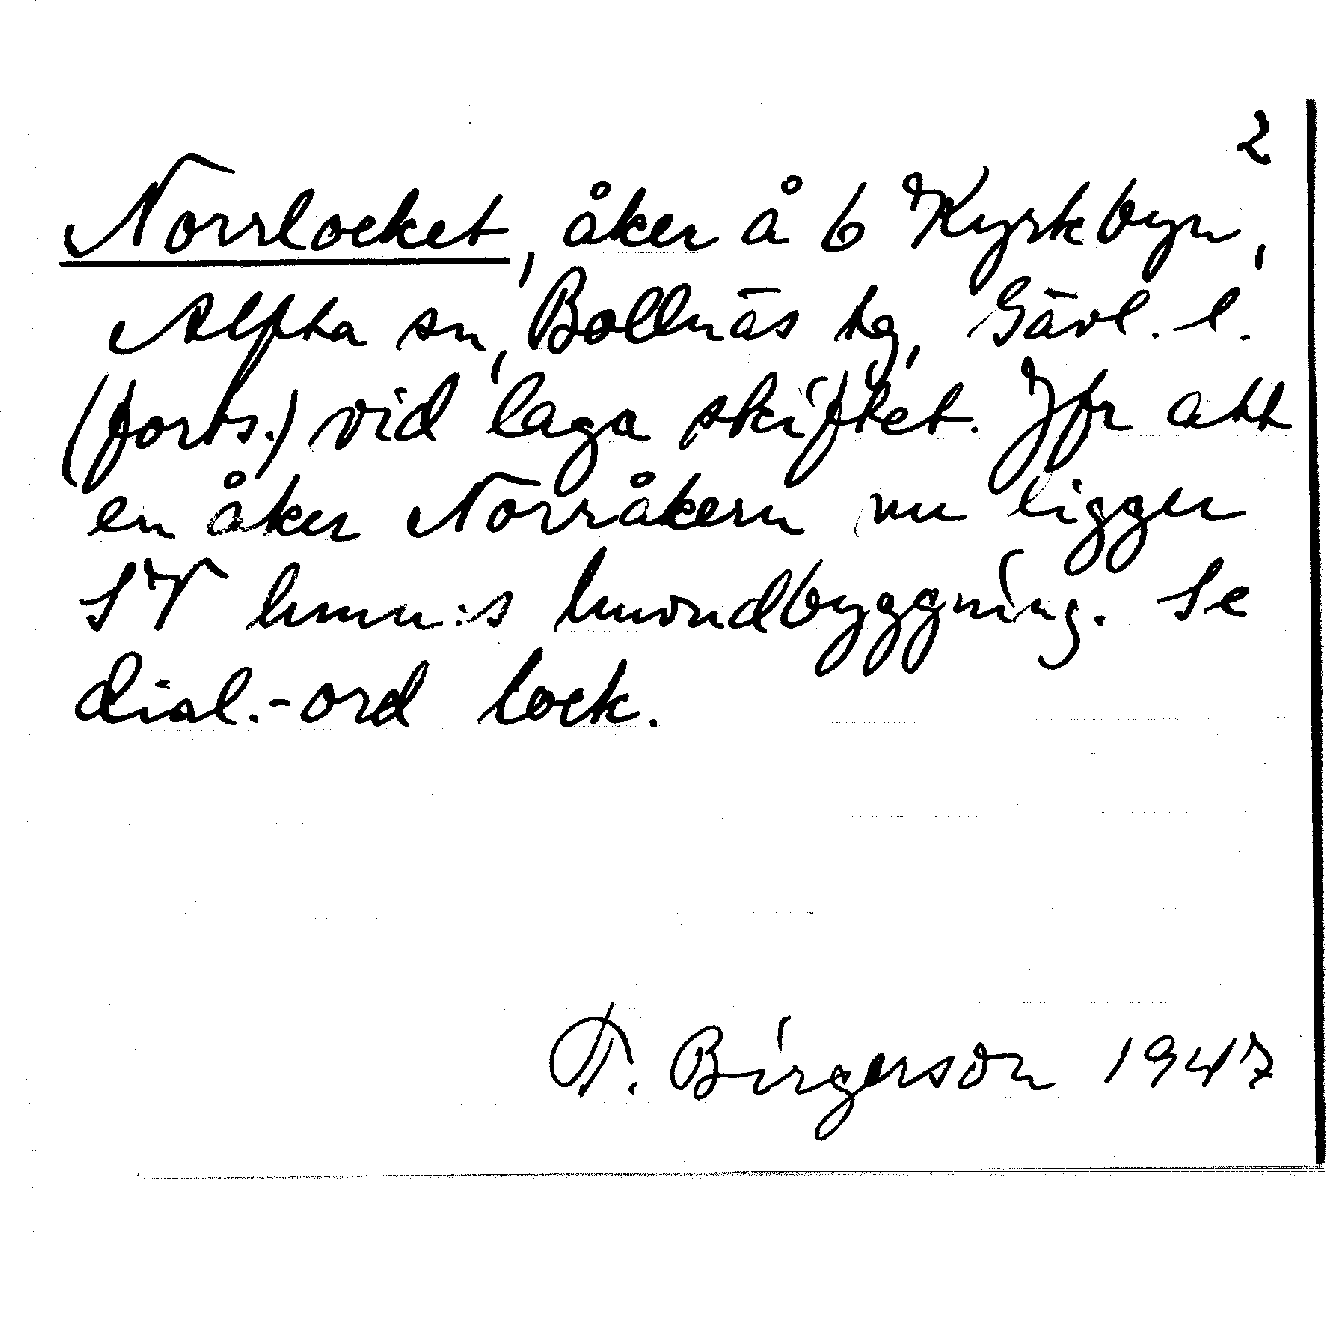 2
Norrlocket, åker å 6 Kyrkbyn,
Alfta sn, Bollnäs tg, Gävl. l.
(forts.) vid laga skiftet. Jfr att
en åker Norråkern nu ligger
SV hmn:s huvudbyggning. Se
dial.-ord lock.
F. Birgerson 1947